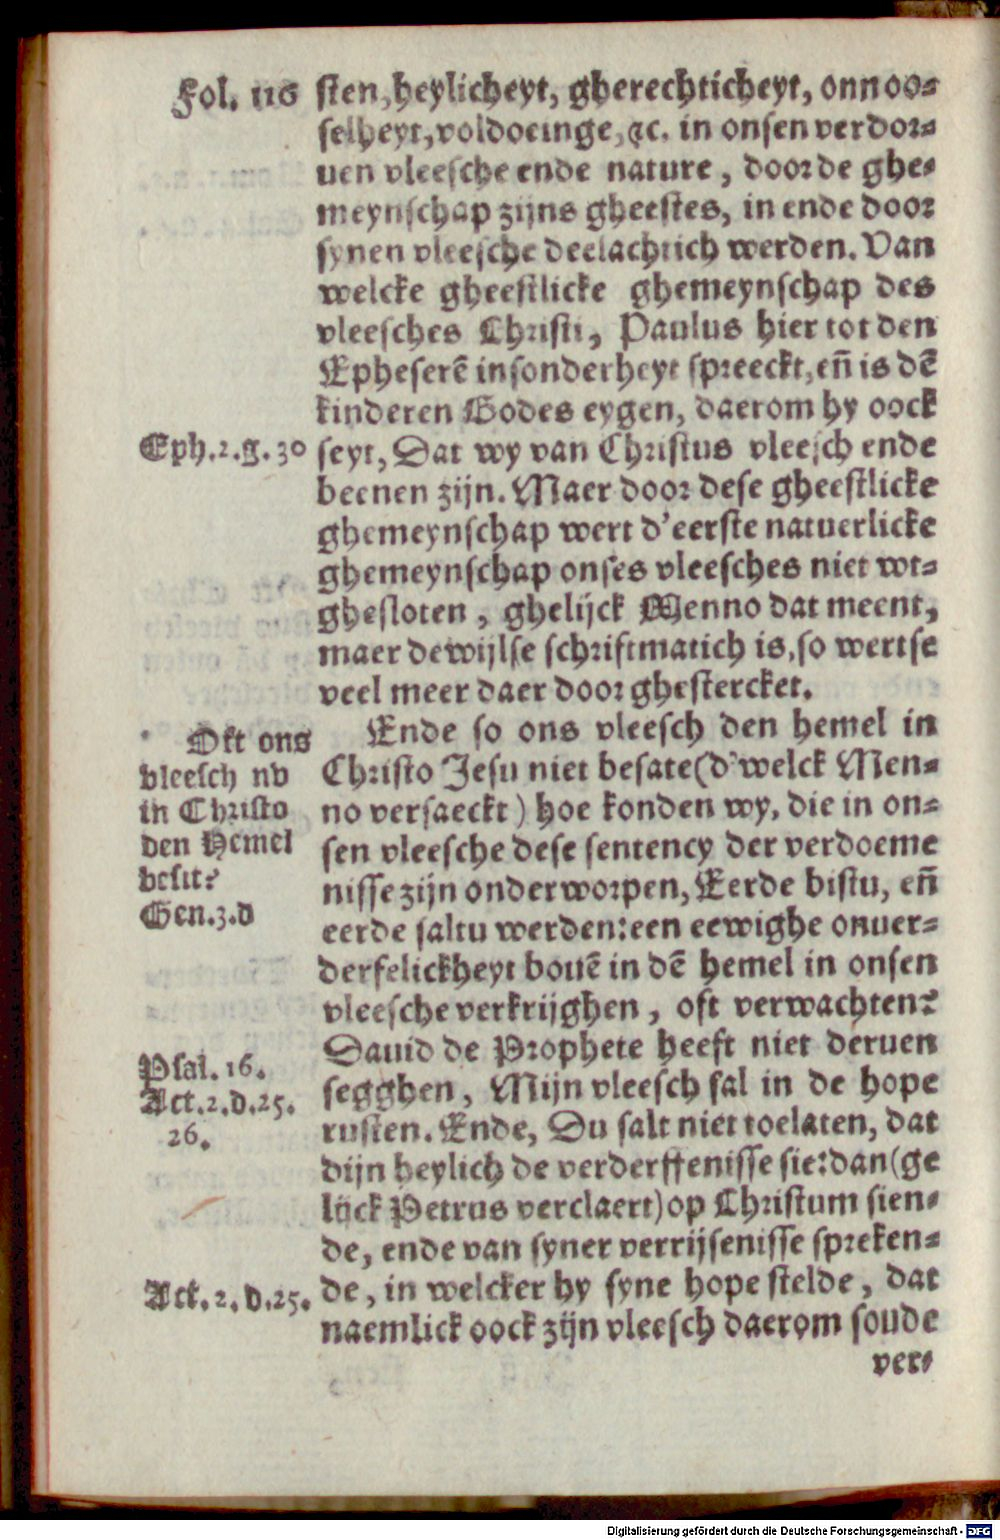 Fol. 116
sten, heylicheyt, gherechticheyt, onnoo-
selheyt, voldoeinge, ⁊c. in onsen verdor-
uen vleesche ende nature, door de ghe-
meynschap zijns gheestes, in ende door
synen vleesche deelachtich werden. Van
welcke gheestlicke ghemeynschap des
vleesches Christi, Paulus hier tot den
Epheserē insonderheyt spreeckt, eñ is dē
kinderen Godes eygen, daerom hy oock
Eph. 2. g. 30
seyt, Dat wy van Christus vleesch ende
beenen zijn. Maer door dese gheestlicke
ghemeynschap wert d'eerste natuerlicke
ghemeynschap onses vleesches niet wt-
ghesloten, ghelijck Menno dat meent,
maer dewijlse schriftmatich is, so wertse
veel meer daer door ghestercket.
Oft ons
vleesch nv
in Christo
den Hemel
besit?
Gen. 3. d
Ende so ons vleesch den hemel in
Christo Jesu niet besate (d'welck Men-
no versaeckt) hoe konden wy, die in on-
sen vleesche dese sentency der verdoeme
nisse zijn onderworpen, Eerde bistu, eñ
eerde saltu werden: een eewighe onuer-
derfelickheyt bouē in dē hemel in onsen
vleesche verkrijghen, oft verwachten?
Dauid de Prophete heeft niet deruen
Psal. 16.
Act. 2. d. 25.
26.
segghen, Mijn vleesch sal in de hope
rusten. Ende, Du salt niet toelaten, dat
dijn heylich de verderffenisse sie: dan (ge
lijck Petrus verclaert) op Christum sien-
de, ende van syner verrijsenisse spreken-
Act. 2. d. 25.
de, in welcker hy syne hope stelde, dat
naemlick oock zijn vleesch daerom soude
ver-
Digitalisierung gefördert durch die Deutsche Forschungsgemeinschaft - DFG